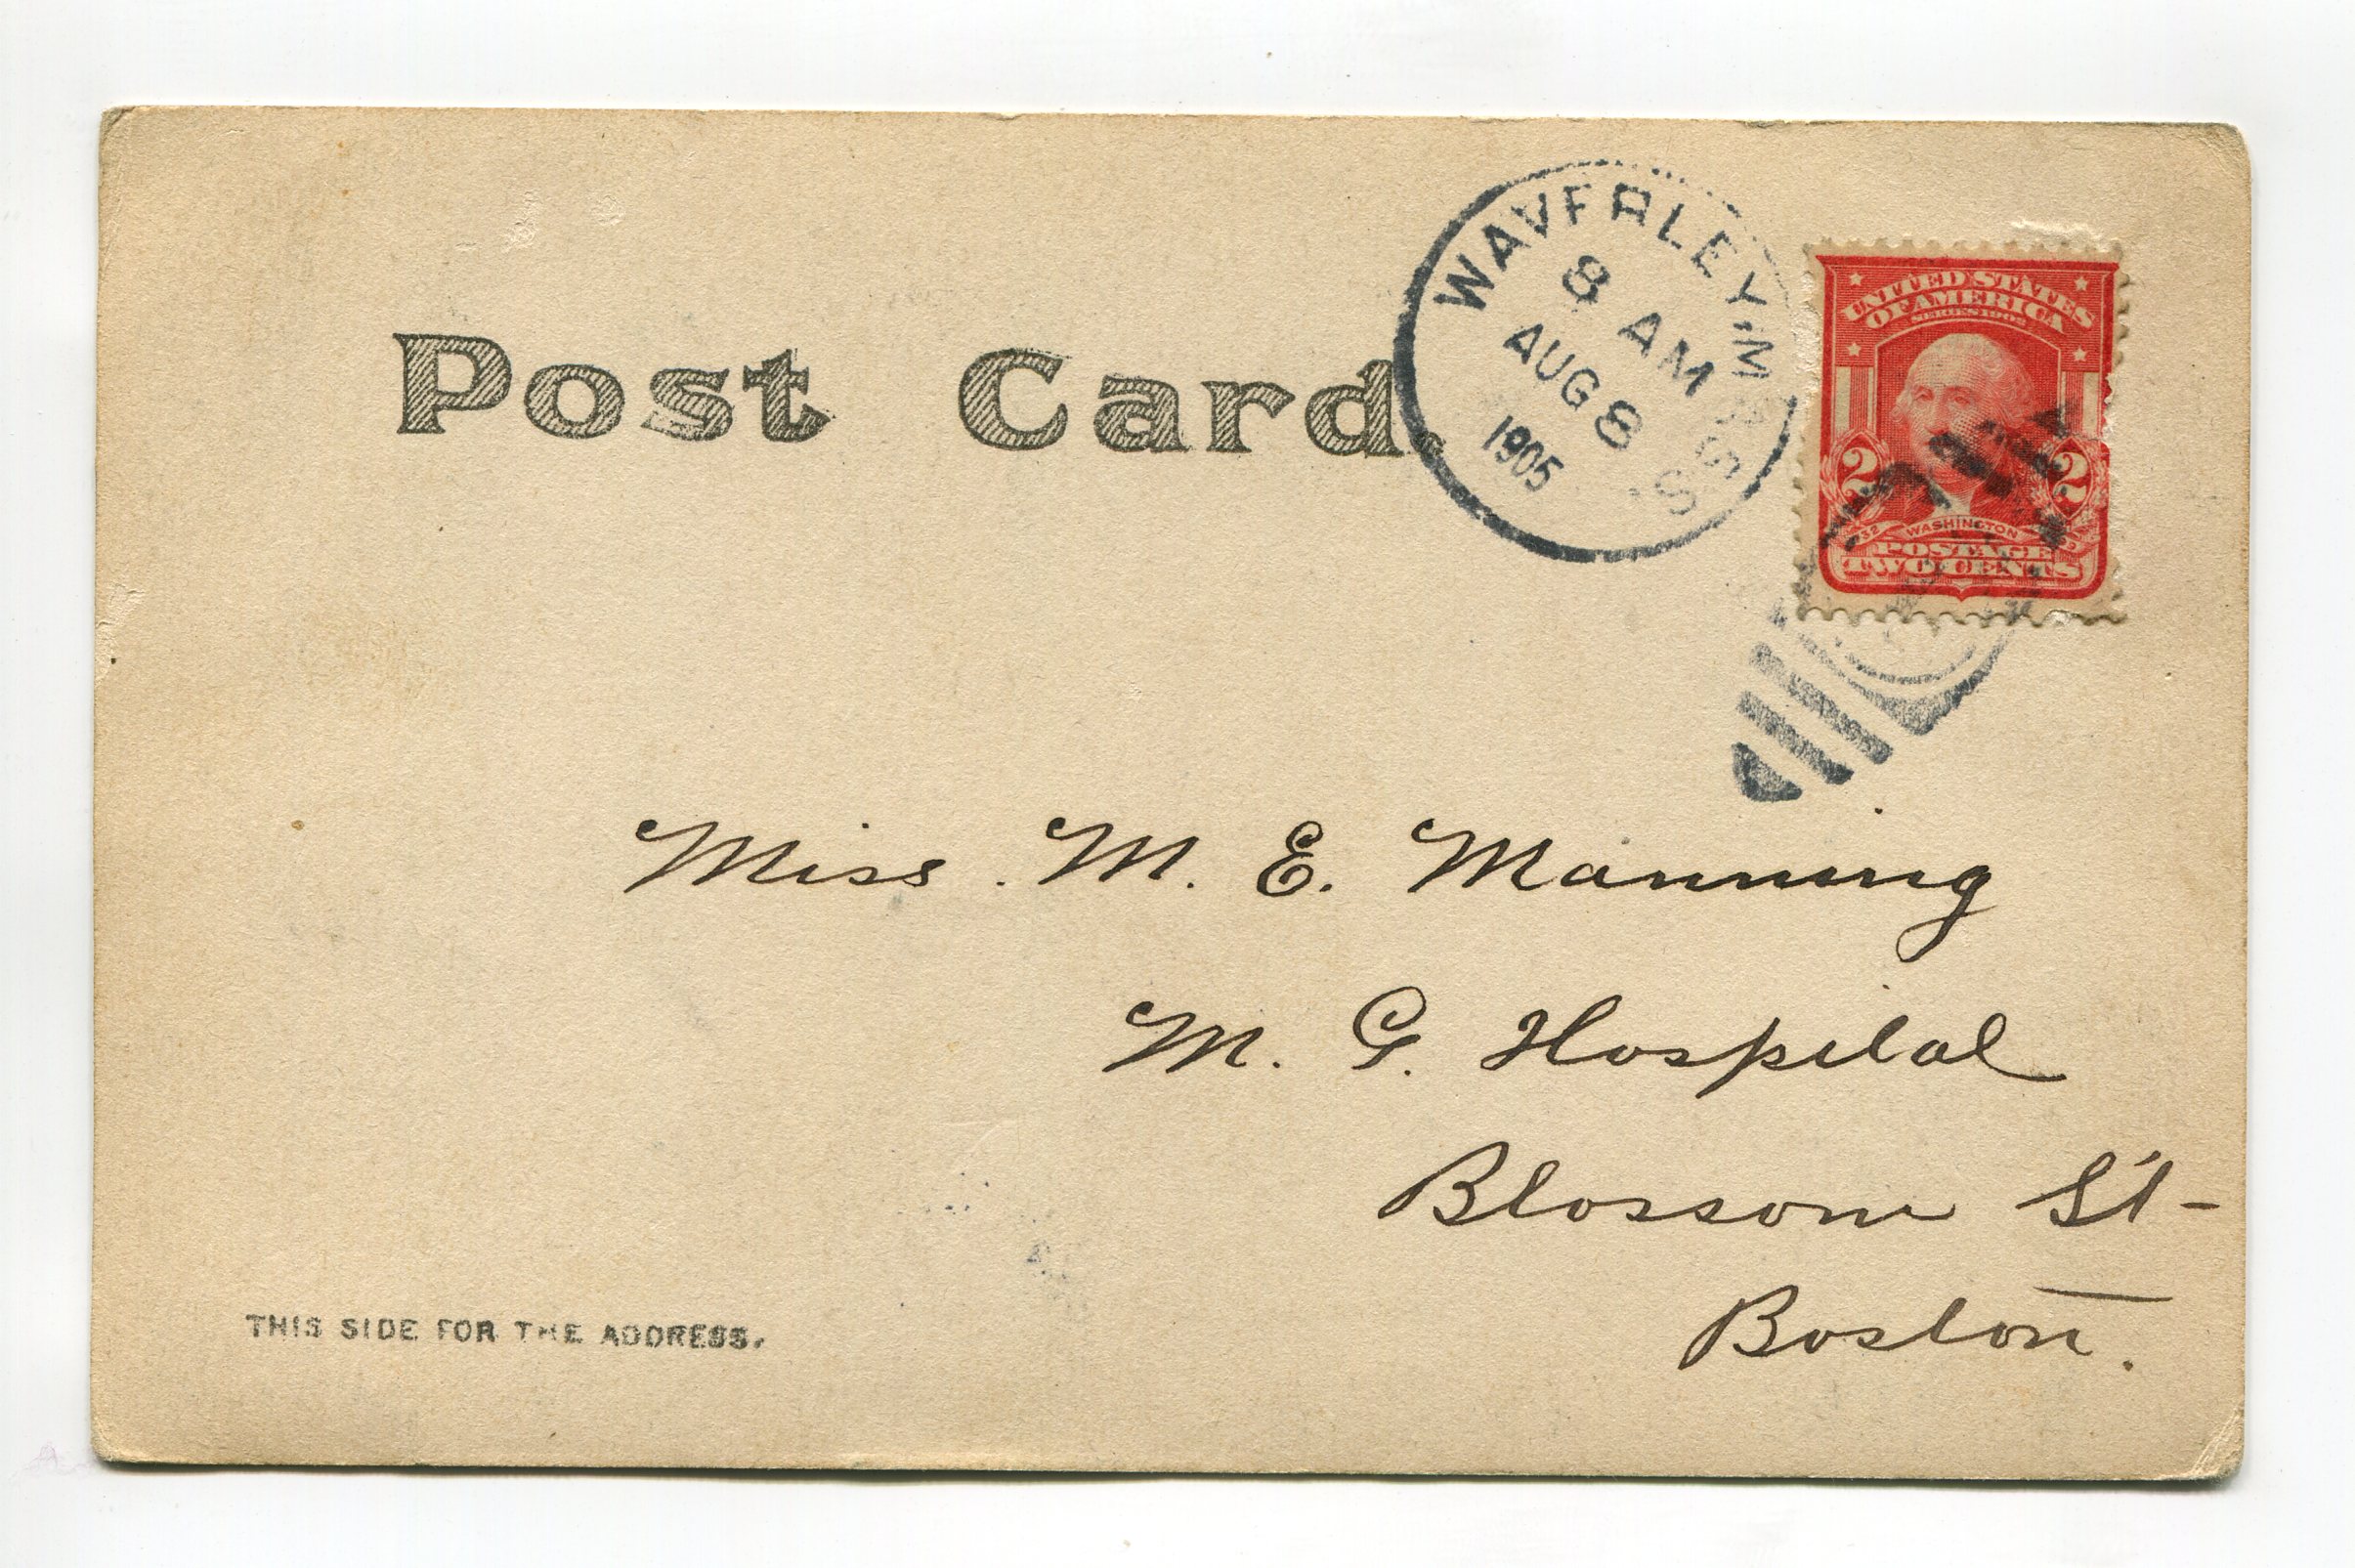 Post Card.
WAVERLEY, MASS
8 AM
AUG 8
1905
UNITED STATES
OF AMERICA
SERIES 1902
2 2
WASHINGTON
POSTAGE
TWO CENTS
Miss. M. E. Manning
M. G. Hospital
Blossom St-
Boston.
THIS SIDE FOR THE ADDRESS.